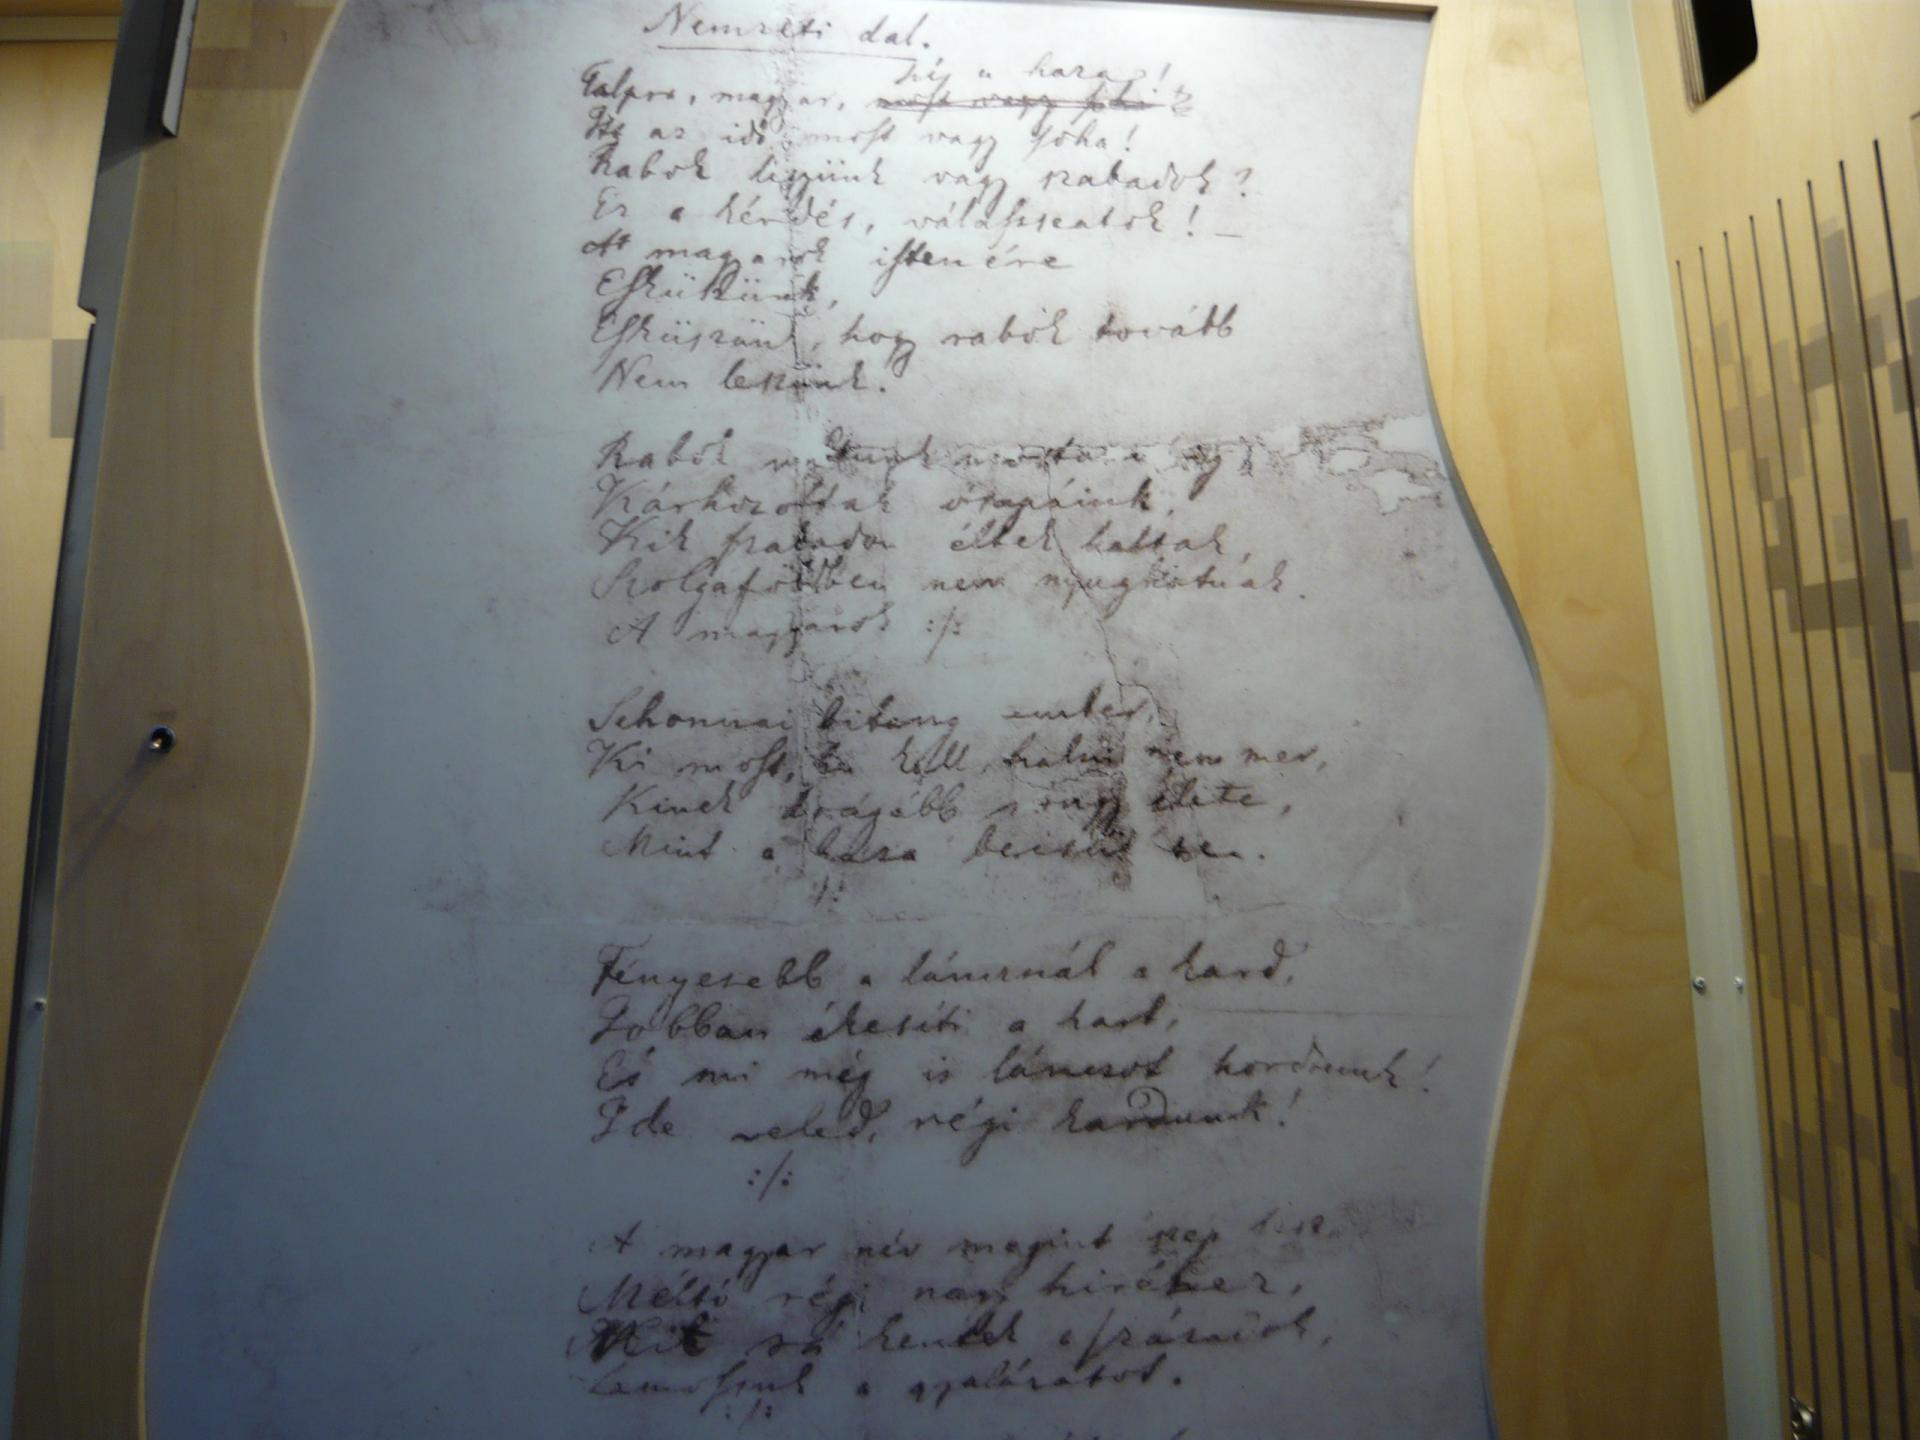 Nemzeti dal.
hí a haza!
Talpra, magyar, most vagy soha!
Itt az idő, most vagy soha!
Rabok legyünk vagy szabadok?
Ez a kérdés, válasszatok! –
A magyarok istenére
Esküszünk,
Esküszünk, hogy rabok tovább
Nem leszünk.
Rabok voltunk mostanáig
Kárhozottak ősapáink,
Kik szabadon éltek haltak,
Szolgaföldben nem nyughatnak.
A magyarok :/:
Sehonnai bitang ember,
Ki most, ha kell, halni nem mer,
Kinek drágább rongy élete,
Mint a haza becsülete.
:/:
Fényesebb a láncznál a kard,
Jobban ékesíti a kart,
És mi még is lánczot hordunk!
Ide veled, régi kardunk!
:/:
A magyar név megint szép lesz,
Méltó régi nagy hiréhez,
Mit rá kentek a századok,
Lemossuk a gyalázatot.
:/: